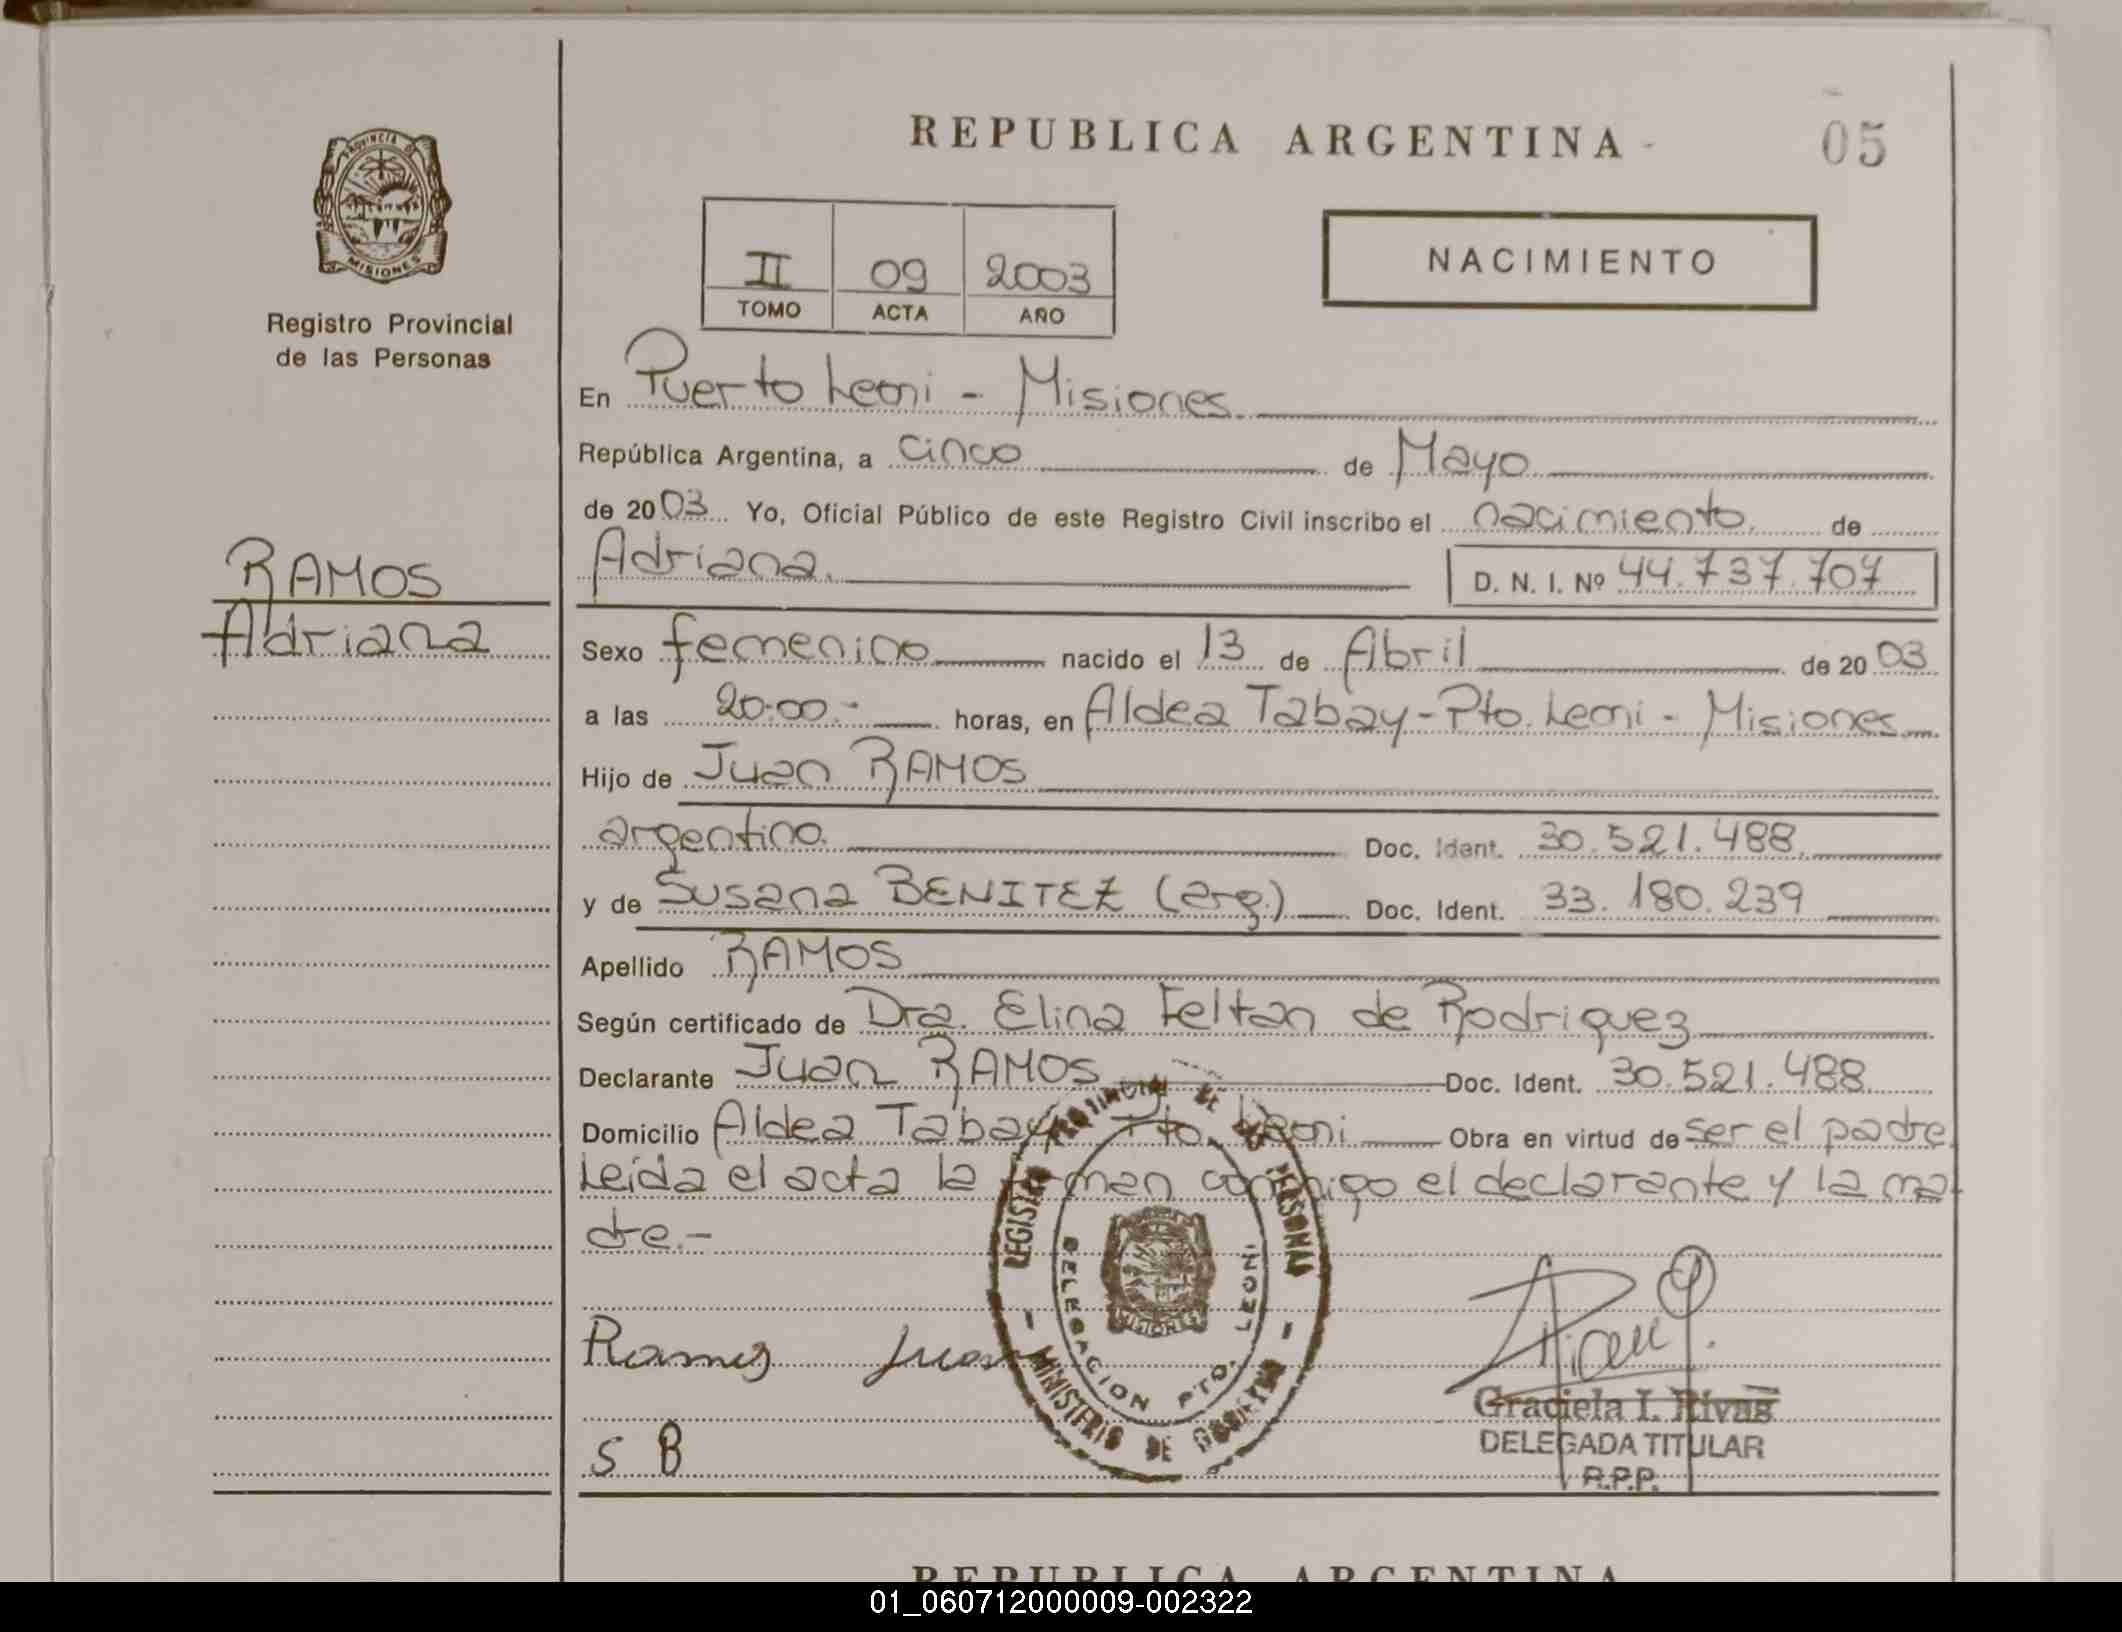 PROVINCIA DE
MISIONES
Registro Provincial
de las Personas
RAMOS
Adriana
REPUBLICA ARGENTINA
05
II 09 2003
TOMO ACTA AÑO
NACIMIENTO
En Puerto Leoni - Misiones.
República Argentina, a cinco de Mayo
de 2003 Yo, Oficial Público de este Registro Civil inscribo el nacimiento. de
Adriana. D. N. I. Nº 44.737.707
Sexo femenino nacido el 13 de Abril de 2003
a las 20.00.- horas, en Aldea Tabay-Pto. Leoni - Misiones.
Hijo de Juan RAMOS
argentino. Doc. Ident. 30.521.488.
y de Susana BENITEZ (arg.) Doc. Ident. 33.180.239
Apellido RAMOS
Según certificado de Dra. Elina Feltan de Rodriguez
Declarante Juan RAMOS Doc. Ident. 30.521.488
Domicilio Aldea Tabay Pto. Leoni Obra en virtud de ser el padre.
Leída el acta la firman conmigo el declarante y la ma-
dre.-
REGISTRO PROVINCIAL DE LAS PERSONAS
- MINISTERIO DE GOBIERNO -
DELEGACION PTO. LEONI
MISIONES
Ramos Juan
S B
Graciela I. Rivas
DELEGADA TITULAR
R.P.P.
REPUBLICA ARGENTINA
01_060712000009-002322